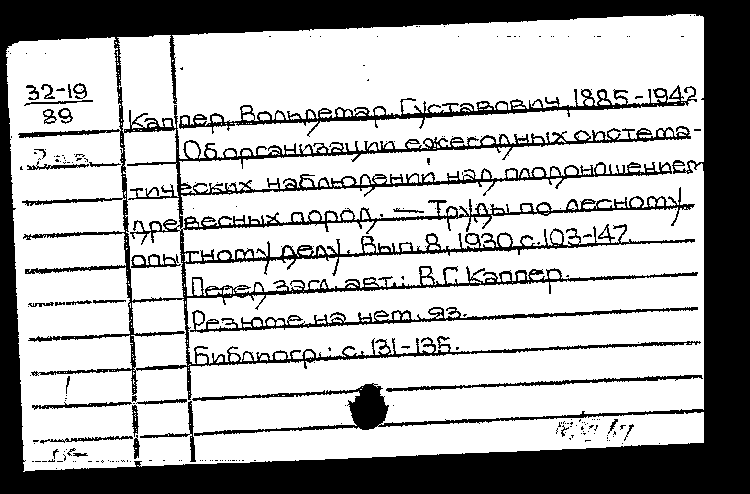 32-19
89
Каппер, Вольдемар Густавович, 1885-1942.
Об организации ежегодных система-
тических наблюдений над плодоношением
древесных пород. — Труды по лесному
опытному делу. Вып. 8, 1930, с. 103-147.
Перед загл. авт.: В.Г. Каппер.
Резюме на нем. яз.
Библиогр.: с. 131-135.